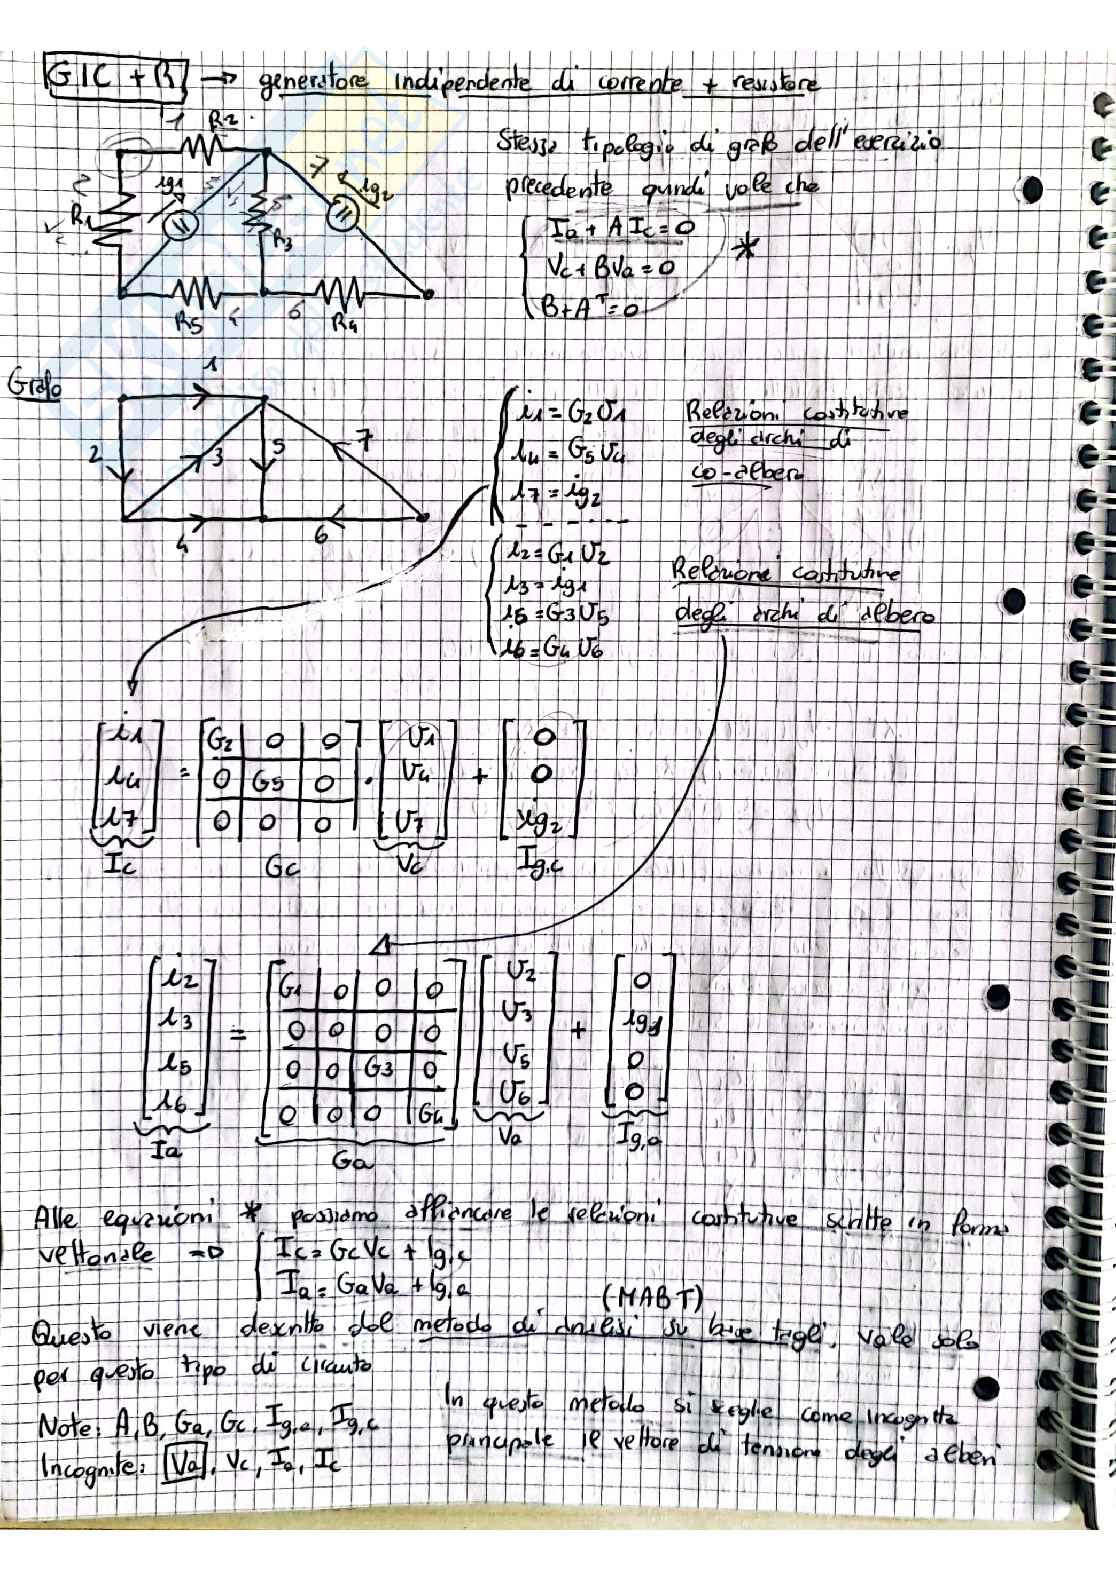 GIC + R → generatore indipendente di corrente + resistore
1 R2
Stessa tipologia di grafi dell'esercizio
precedente quindi vale che
2 ig1 7 ig2
R1 R3
Vc
R5 4 6 R4
Ia + A Ic = 0
Vc + BVa = 0 *
B + A^T = 0
Grafo
1
2 3 5 7
4 6
i1 = G2 V1
i4 = G5 V4
i7 = ig2
Relazioni costitutive
degli archi di
co-albero
i2 = G1 V2
i3 = ig1
i5 = G3 V5
i6 = G4 V6
Relazione costitutive
degli archi di albero
i1 G2 0 0 V1 0
i4 = 0 G5 0 · V4 + 0
i7 0 0 0 V7 ig2
Ic Gc Vc Ig,c
i2 G1 0 0 0 V2 0
i3 = 0 0 0 0 V3 + ig1
i5 0 0 G3 0 V5 0
i6 0 0 0 G4 V6 0
Ia Ga Va Ig,a
Alle equazioni * possiamo affiancare le relazioni costitutive scritte in forma
vettoriale => Ic = Gc Vc + Ig,c
Ia = Ga Va + Ig,a
(MABT)
Questo viene descritto dal metodo di analisi su base tagli, vale solo
per questo tipo di circuito
Note: A, B, Ga, Gc, Ig,a, Ig,c
Incognite: Va, Vc, Ia, Ic
In questo metodo si sceglie come incognita
principale il vettore di tensione degli alberi